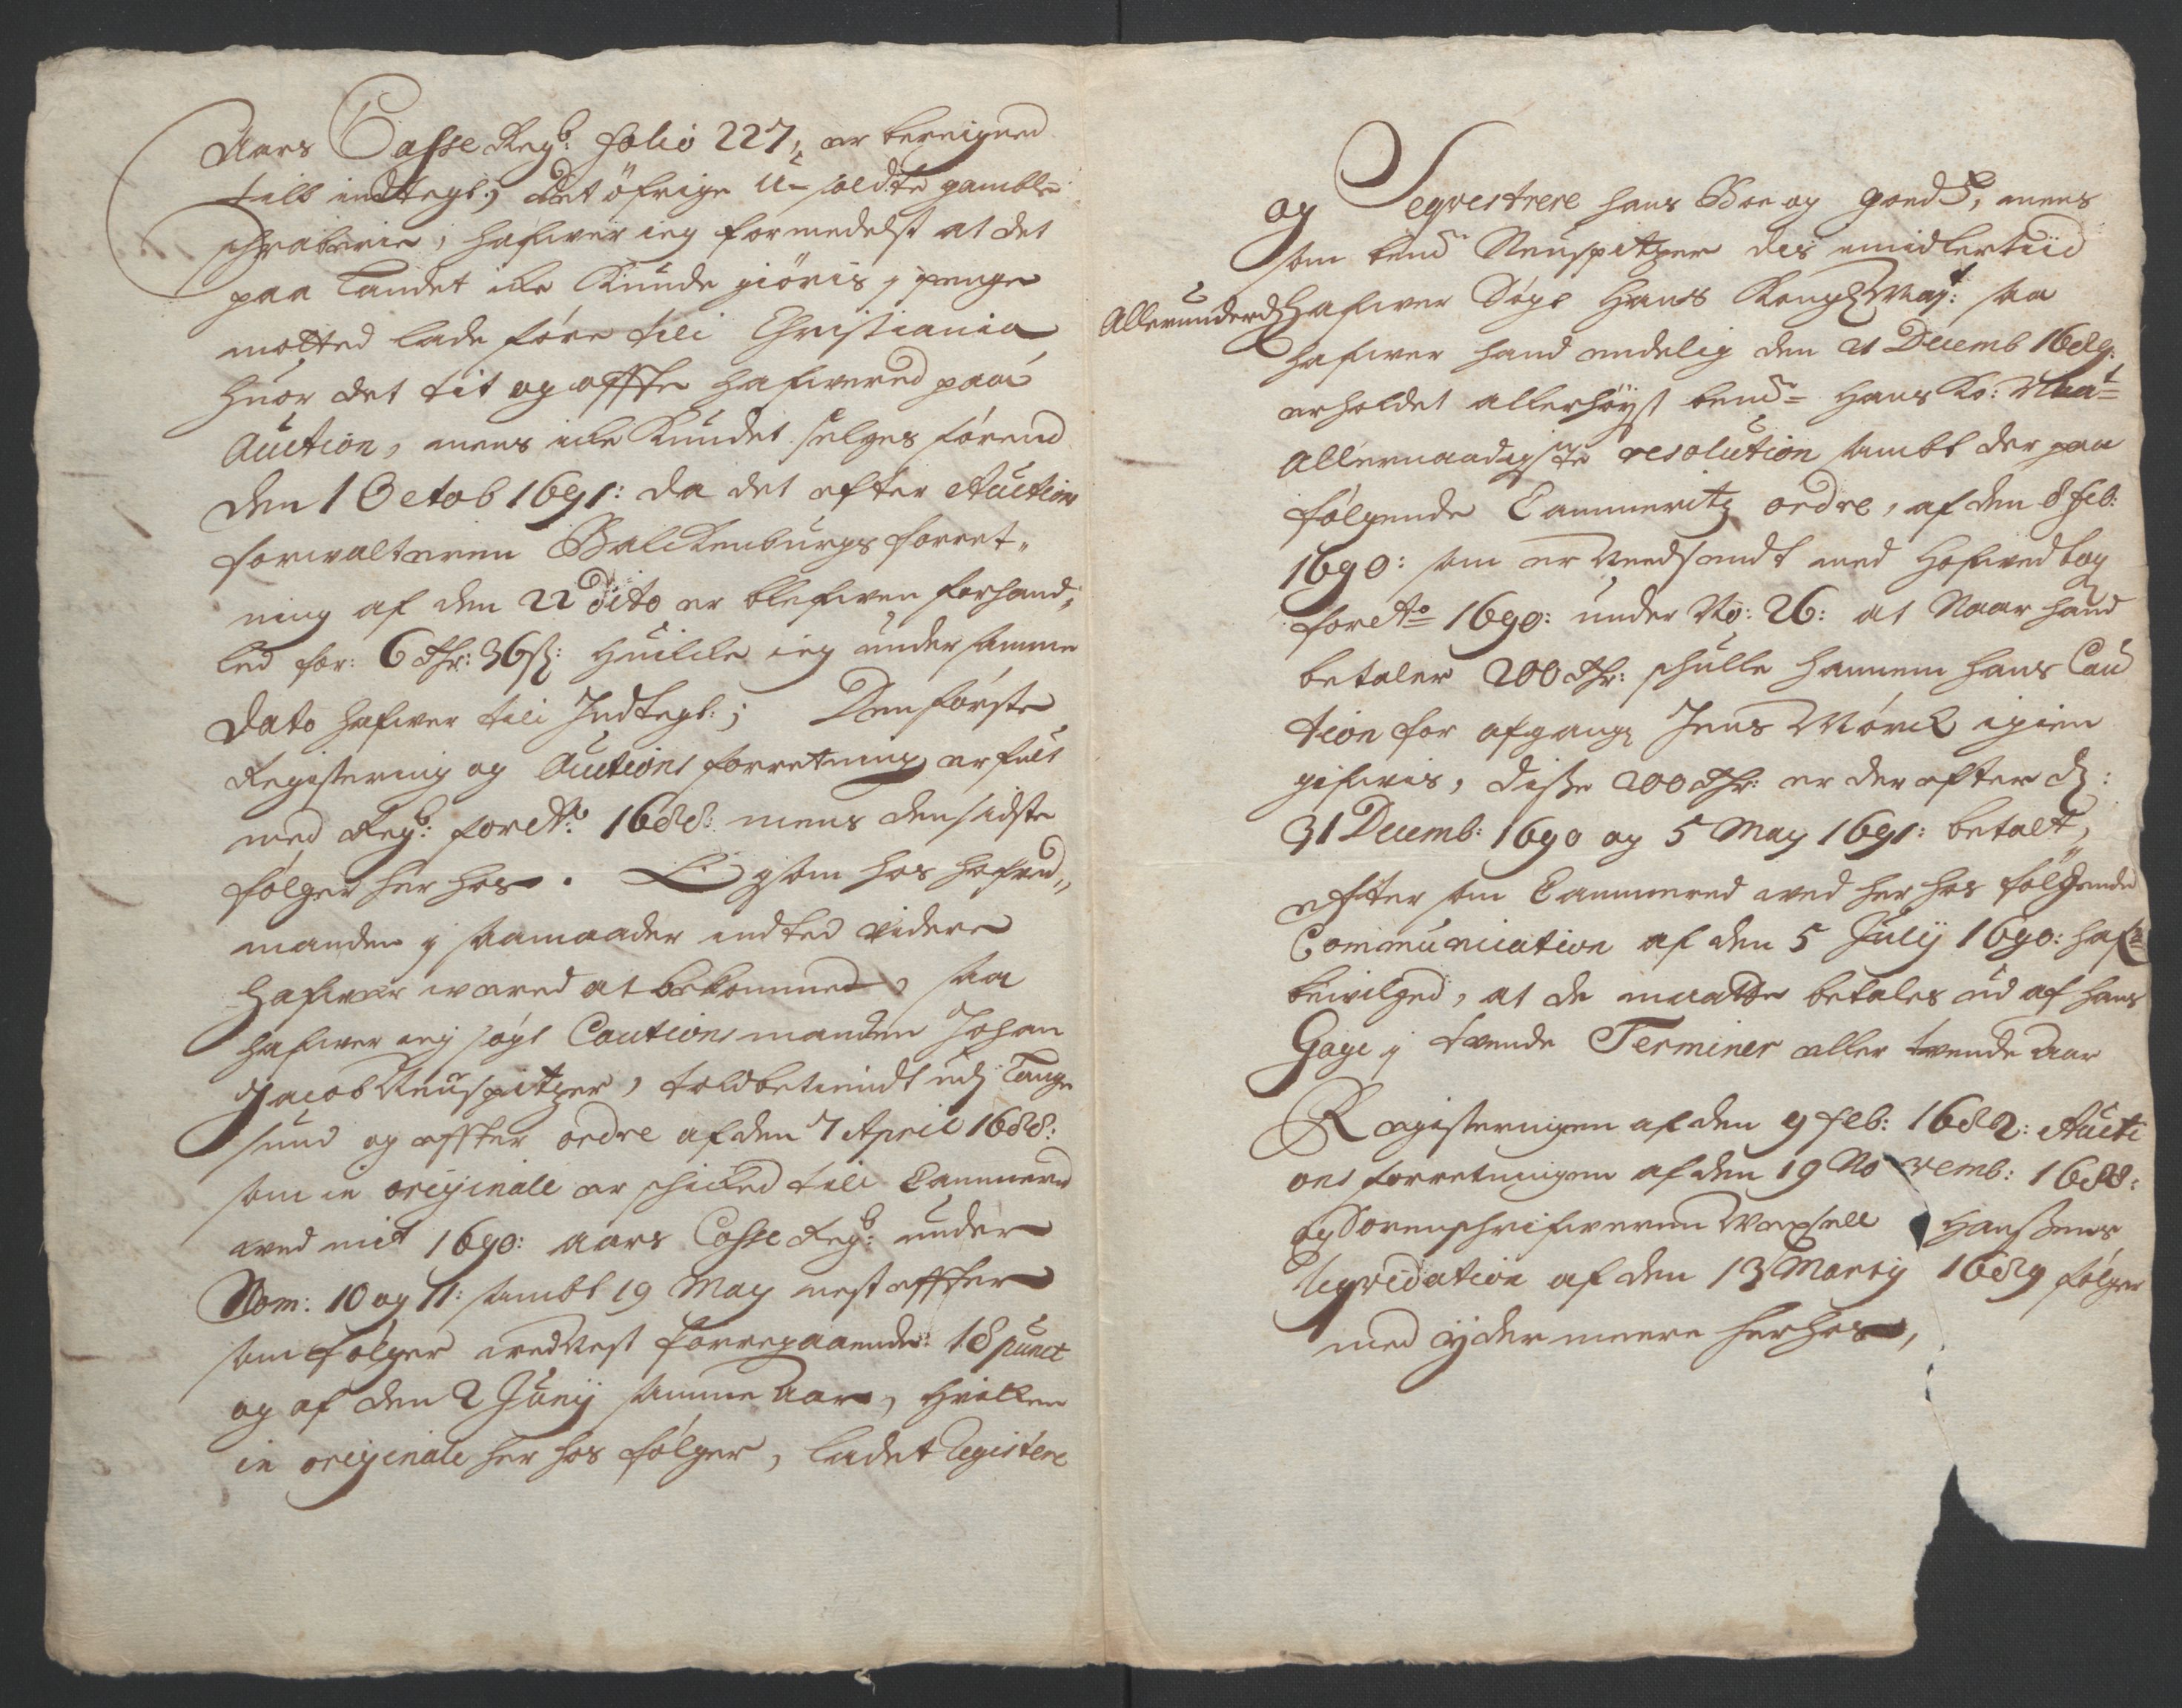 Aars Casse Regb: folio 227, er bereigned
till indtegt; det öfrige u-soldte gamble
schraberie, hafwer ieg formedelst at det
paa Landet icke Kunde giöris i penge
motted lade före till Christiania
huor det tit og offte hafwered paa
Auction, mens icke Kundet selges förend
den 1 Octob 1691: da det efter Auctions
forwalteren Balckenburgs forret-
ning af den 22 dito er blefwen forhand-
led for: 6 Rdr: 36 ß: huilcke ieg under samme
dato hafwer till Indtegt; Den förste
Registering og Auctions forretning er fult
med Regb: for Ao: 1688: mens den sidste
fölger her hos. Og som hos hofved-
manden i saamaader indted videre
hafwer wæred at bekomme, saa
hafwer ieg sögt Cautionsmanden Johan
Jacob Neuspitzer, toldbetiendt udj Lange
sund og effter ordre af den 7 April 1688:
som in originale er schicked till Cammered
wed mit 1690: aars Casse Regb: under
Nom: 10 og 11: sambt 19 May nest effter
som fölger wed Nest forregaaende 18 punct
og af den 2 Junij samme Aar, hvilcken
in originale her hos fölger, ladet Registere
og Seqvestrere hans Boe og goeds, mens
som bemte Neuspitzer dis imidlertiid
Allerunderd: hafwer Sögt Hans Kongl: Mayt: saa
hafwer hand endelig den 21 Decemb 1689:
erholdet allerhöyst bemte Hans Ko: Maats
Allernaadigste resolution sambt der paa
fölgende Cammeritz ordre, af den 8 feb:
1690: som er Needsendt med Hofwedbog
for Ao 1690: under No: 26: at Naar hand
betaler 200 Rdr: schulle hannem hans Cau
tion for afgangn Jens Mörch igien
gifwis, disse 200 Rdr: er der efter d:
31 Decemb: 1690 og 5 May 1691: betalt,
effter som Cammered wed her hos fölgende
Communication af den 5 Julij 1690: hafr
bewilged, at de maatte betales ud af hans
Gage i tvende Terminer eller tvende Aar
Registeringen af den 9 feb: 1682: Aucti
ons forretningen af den 19 Novemb: 1688:
og Sorenschrifweren Hanssens
liqvidation af den 13 Marty 1689 fölger
med ijdermeere her hos,